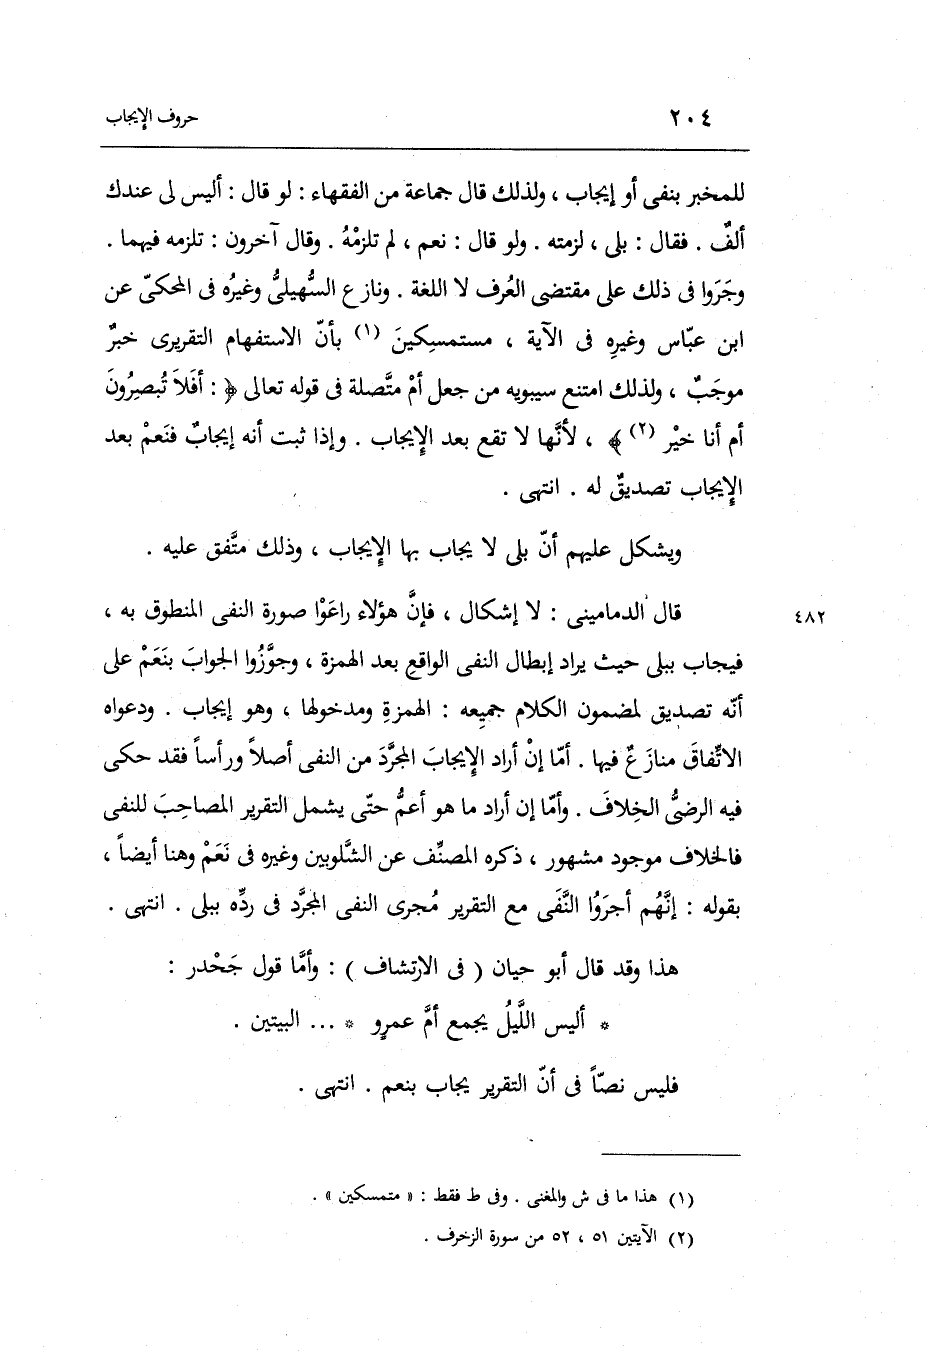 ٢٠٤ حروف الإيجاب
للمخبر بنفى أو إيجاب ، ولذلك قال جماعة من الفقهاء : لو قال : أليس لى عندك
ألفٌ . فقال : بلى ، لزمته . ولو قال : نعم ، لم تلزمْهُ . وقال آخرون : تلزمه فيهما .
وجَرَوا فى ذلك على مقتضى العُرف لا اللغة . ونازع السُّهيلىُّ وغيرُه فى المحكىّ عن
ابن عبّاس وغيرِه فى الآية ، مستمسِكينَ (١) بأنّ الاستفهام التقريرى خبرٌ
موجَبٌ ، ولذلك امتنع سيبويه من جعل أمْ متَّصلة فى قوله تعالى ﴿ : أفَلاَ تُبصِرُونَ
أم أنا خيْر (٢) ﴾ ، لأنَّها لا تقع بعد الإيجاب . وإذا ثبت أنه إيجابٌ فنَعمْ بعد
الإيجاب تصديقٌ له . انتهى .
ويشكل عليهم أنّ بلى لا يجاب بها الإيجاب ، وذلك متَّفق عليه .
٤٨٢ قال الدمامينى : لا إشكال ، فإنَّ هؤلاء راعَوْا صورة النفى المنطوق به ،
فيجاب ببلى حيث يراد إبطال النفى الواقع بعد الهمزة ، وجوَّزُوا الجوابَ بنَعَمْ على
أنّه تصديق لمضمون الكلام جميعِه : الهمزةِ ومدخولها ، وهو إيجاب . ودعواه
الاتّفاقَ منازَعٌ فيها . أمّا إنْ أراد الإيجابَ المجرَّدَ من النفى أصلاً ورأساً فقد حكى
فيه الرضىُّ الخِلافَ . وأمّا إن أراد ما هو أعمُّ حتّى يشمل التقرير المصاحِبَ للنفى
فالخلاف موجود مشهور ، ذكره المصنِّف عن الشَّلوبين وغيره فى نَعَمْ وهنا أيضاً ،
بقوله : إنَّهُم أجرَوُا النَّفَى مع التقرير مُجرى النفى المجرَّد فى ردِّه ببلى . انتهى .
هذا وقد قال أبو حيان ( فى الارتشاف ) : وأمَّا قول جَحْدر :
* أليس اللَّيلُ يجمع أمَّ عمرٍو * ... البيتين .
فليس نصّاً فى أنّ التقرير يجاب بنعم . انتهى .
(١) هذا ما فى ش والمغنى . وفى ط فقط : « متمسكين » .
(٢) الآيتين ٥١ ، ٥٢ من سورة الزخرف .